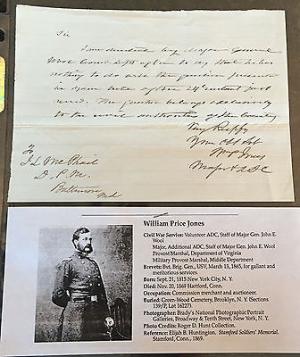 Sir
I am directed by Major General
Wool
nothing to do with the
in your
belongs exclusively
to the civil authorities of the Country
Very Respy
Your Obt Svt
Wm P Jones
Major & ADC
To
J L McPhail
D. P. M.
Baltimore
Md
William Price Jones
Civil War Service: Volunteer ADC, Staff of Major Gen. John E.
Wool
Major, Additional ADC, Staff of Major Gen. John E. Wool
Provost Marshal, Department of Virginia
Military Provost Marshal, Middle Department
Brevets: Bvt. Brig. Gen., USV, March 13, 1865, for gallant and
meritorious services.
Born: Sept. 21, 1815 New York City, N.Y.
Died: Nov. 20, 1869 Hartford, Conn.
Occupation: Commission merchant and auctioneer.
Buried: Green-Wood Cemetery, Brooklyn, N.Y. (Section
159/P, Lot 16227).
Photographer: Brady's National Photographic Portrait
Galleries, Broadway & Tenth Street, New York, N.Y.
Photo Credits: Roger D. Hunt Collection.
Reference: Elijah B. Huntington. Stamford Soldiers' Memorial.
Stamford, Conn., 1869.